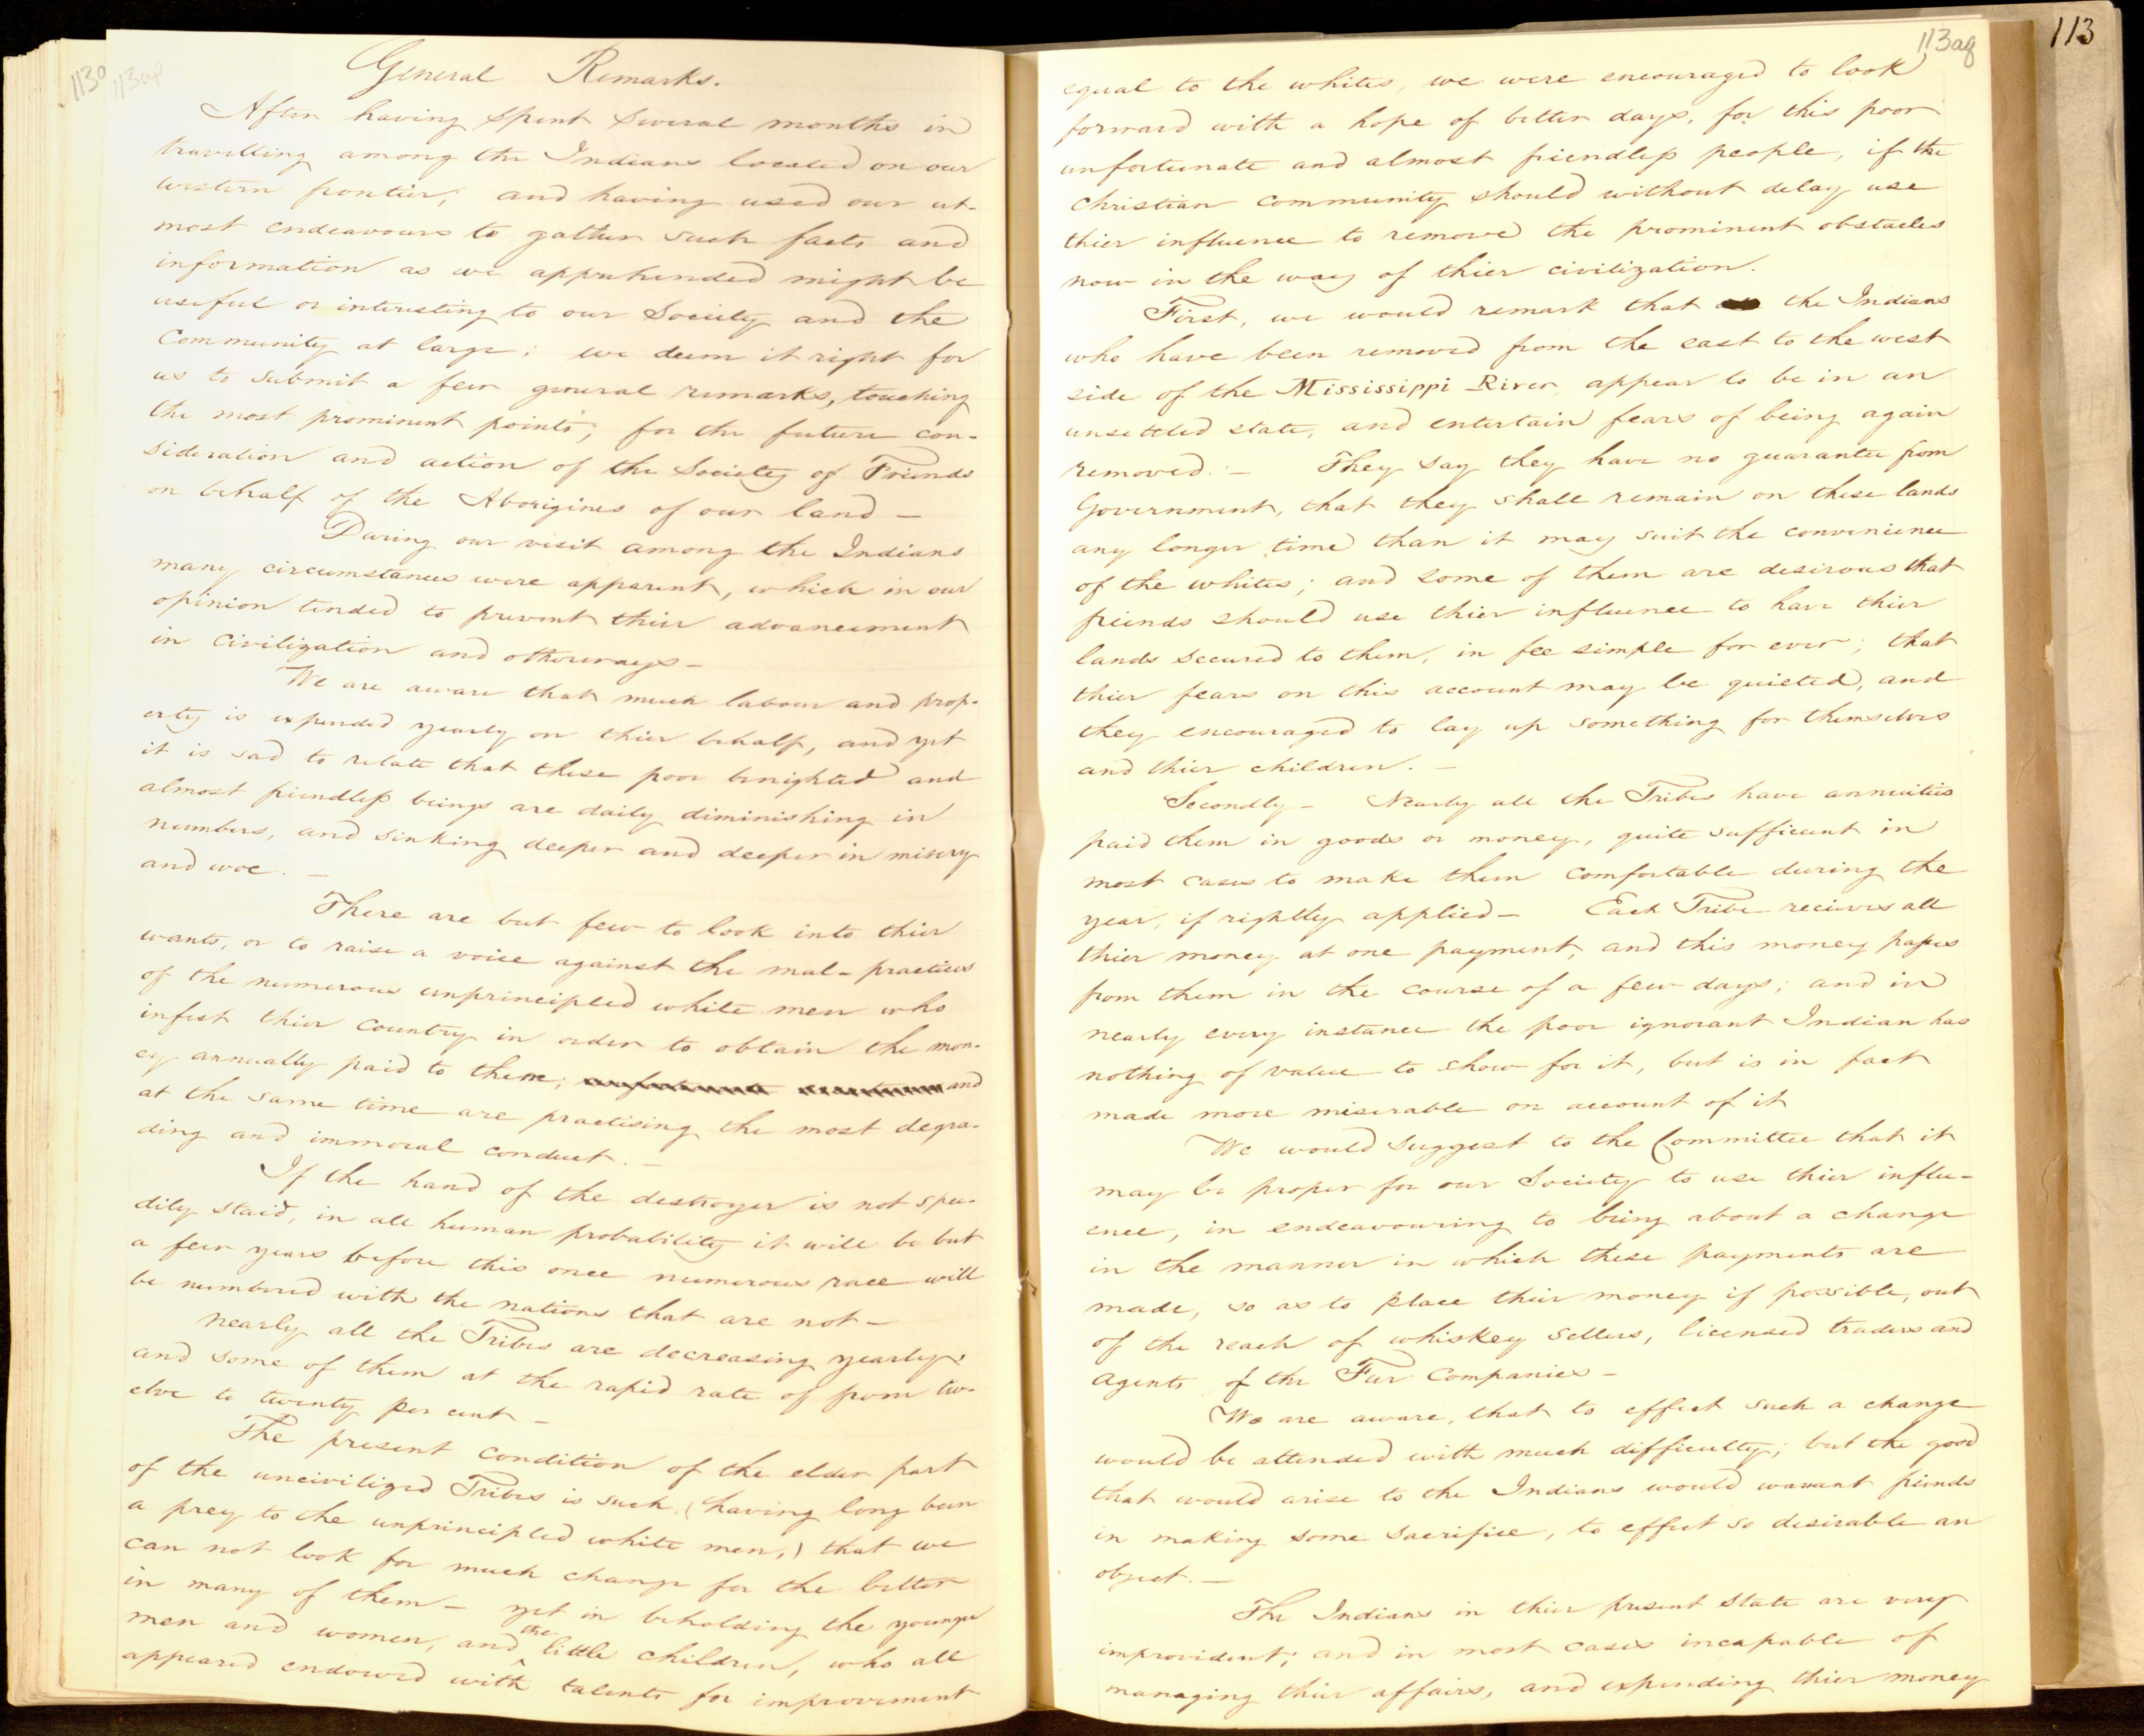 113o 113ap
General Remarks.
After having spent several months in
travelling among the Indians located on our
western frontier, and having used our ut-
most endeavours to gather such facts and
information as we apprehended might be
useful or interesting to our Society and the
Community at large; we deem it right for
us to submit a few general remarks, touching
the most prominent points, for the future con-
sideration and action of the Society of Friends
on behalf of the Aborigines of our land —
During our visit among the Indians
many circumstances were apparent, which in our
opinion tended to prevent thier advancement
in Civilization and otherways —
We are aware that much labour and prop-
erty is expended yearly on thier behalf, and yet
it is sad to relate that these poor benighted and
almost friendless beings are daily diminishing in
numbers, and sinking deeper and deeper in misery
and woe. —
There are but few to look into thier
wants, or to raise a voice against the mal-practices
of the numerous unprincipled white men who
infest thier country in order to obtain the mon-
ey annually paid to them; and
at the same time are practising the most degra-
ding and immoral conduct. —
If the hand of the destroyer is not spee-
dily staid, in all human probability it will be but
a few years before this once numerous race will
be numbered with the nations that are not —
Nearly all the Tribes are decreasing yearly;
and some of them at the rapid rate of from tw-
elve to twenty per cent —
The present condition of the elder part
of the uncivilized Tribes is such, (having long been
a prey to the unprincipled white men,) that we
can not look for much change for the better
in many of them — yet in beholding the younger
men and women, and the little children, who all
appeared endowed with talents for improvement
113aq
113
equal to the whites, we were encouraged to look
forward with a hope of better days, for this poor
unfortunate and almost friendless people, if the
Christian community should without delay use
thier influence to remove the prominent obstacles
now in the way of thier civilization.
First, we would remark that the Indians
who have been removed from the east to the west
side of the Mississippi River, appear to be in an
unsettled state, and entertain fears of being again
removed. — They say they have no guarantee from
Government, that they shall remain on these lands
any longer time than it may suit the convenience
of the whites; and some of them are desirous that
friends should use thier influence to have thier
lands secured to them, in fee simple for ever; that
thier fears on this account may be quieted, and
they encouraged to lay up something for themselves
and thier children. —
Secondly — Nearly all the Tribes have annuities
paid them in goods or money, quite sufficient in
most cases to make them comfortable during the
year, if rightly applied — Each Tribe recieves all
thier money at one payment, and this money passes
from them in the course of a few days; and in
nearly every instance the poor ignorant Indian has
nothing of value to show for it, but is in fact
made more miserable on account of it
We would suggest to the Committee that it
may be proper for our Society to use thier influ-
ence, in endeavouring to bring about a change
in the manner in which these payments are
made, so as to place thier money if possible, out
of the reach of whiskey sellers, licensed traders and
agents of the Fur Companies —
We are aware, that to effect such a change
would be attended with much difficulty; but the good
that would arise to the Indians would warrant friends
in making some sacrifice, to effect so desirable an
object. —
The Indians in thier present state are very
improvident; and in most cases incapable of
managing thier affairs, and expending thier money